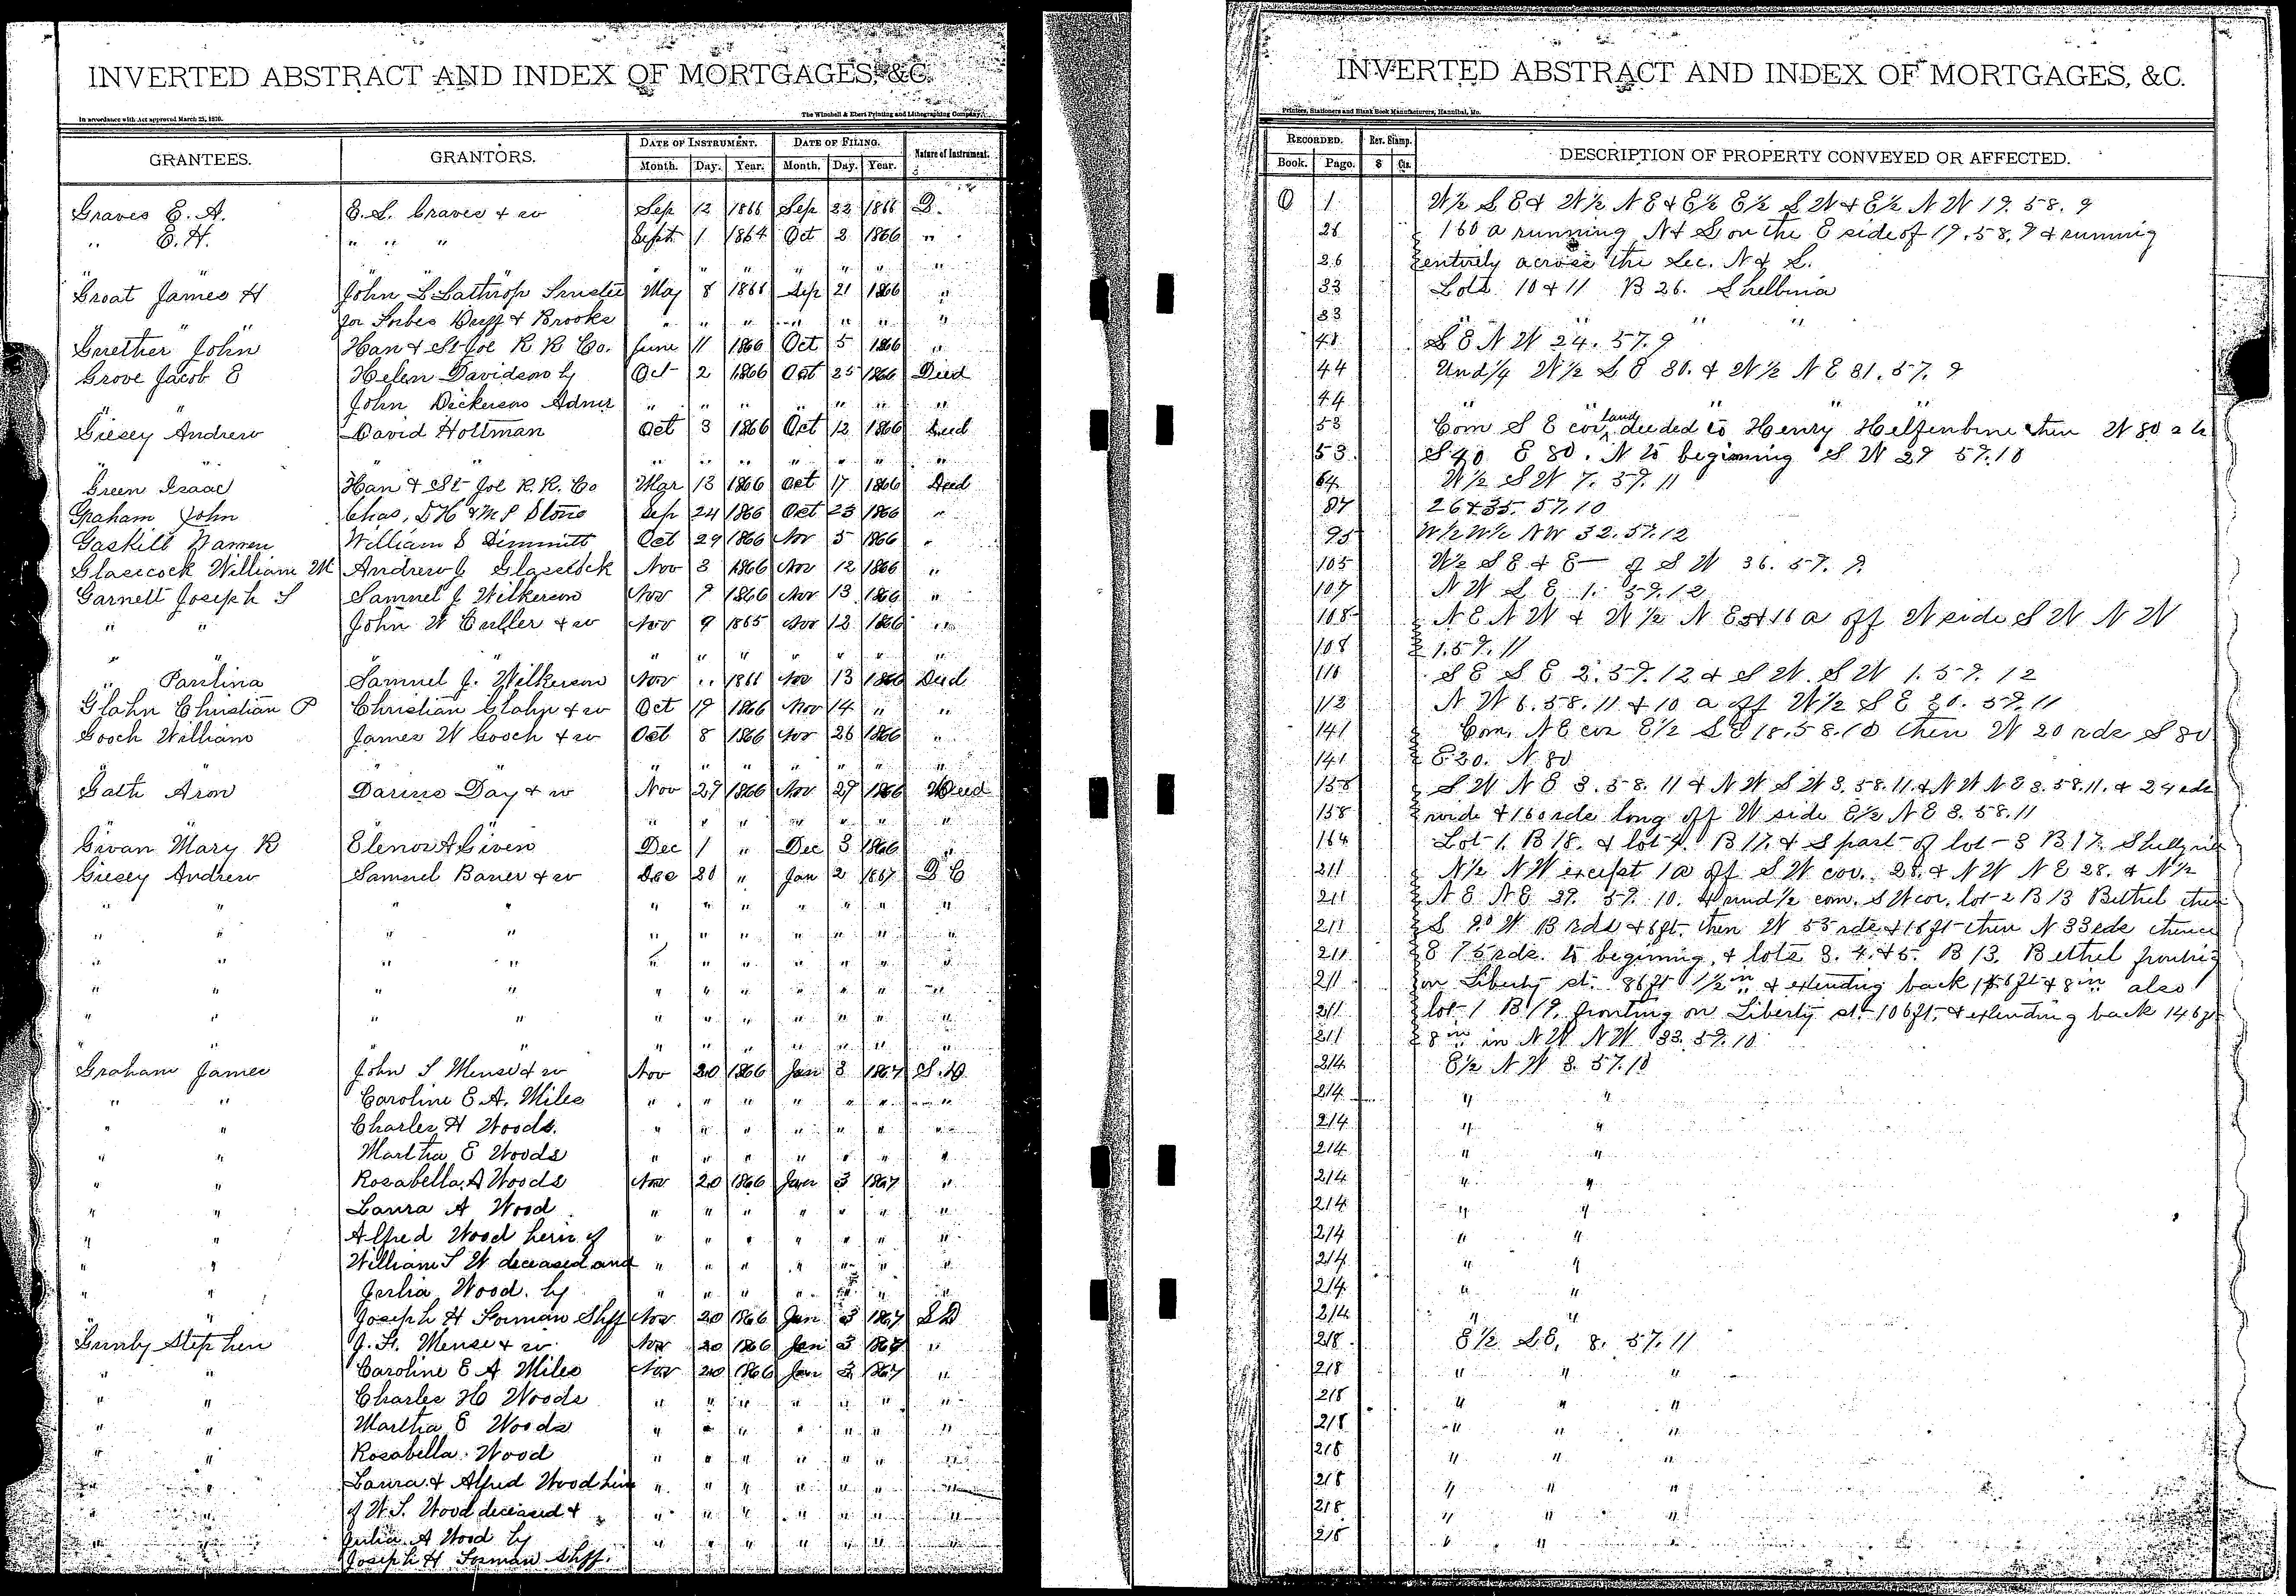 INVERTED ABSTRACT AND INDEX OF MORTGAGES, &C.
In accordance with Act approved March 25, 1870. The Winchell & Ebert Printing and Lithographing Company,
GRANTEES. GRANTORS. DATE OF INSTRUMENT. DATE OF FILING. Nature of Instrument.
Month. Day. Year. Month. Day. Year.
Graves E. A. E. S. Graves & w Sep 12 1866 Sep 22 1866 D.
" E. H. " " " Sept 1 1864 Oct 2 1866 "
" " " " " " " " " "
Groat James H John L Lathrop Trustee May 8 1866 Sep 21 1866 "
for Forbes Duff & Brooks " " " " " " "
Gruether John Han & St Joe R R Co. June 11 1866 Oct 5 1866 "
Grove Jacob E Helen Davidson by Oct 2 1866 Oct 25 1866 Deed
John Dickerson Admr " " " " " " "
Giesey Andrew David Holtman Oct 3 1866 Oct 12 1866 Deed
" " " " " " " "
Green Isaac Han & St Joe R. R. Co Mar 13 1866 Oct 17 1866 Deed
Graham John Chas, D H & M P Stone Sep 24 1866 Oct 23 1866 "
Gaskill Warren William S Dimmitt Oct 29 1866 Nov 5 1866 "
Glasscock William M Andrew J Glasscock Nov 3 1866 Nov 12 1866 "
Garnett Joseph S Samuel J Wilkerson Nov 9 1866 Nov 13 1866 "
" " John W Culler & w Nov 9 1865 Nov 12 1866 "
" " " " " " " " "
" Paulina Samuel J. Wilkerson Nov " 1866 Nov 13 1866 Deed
Glahn Christian P Christian Glahn & w Oct 19 1866 Nov 14 " "
Gooch William James W Gooch & w Oct 8 1866 Nov 26 1866 "
" " " " " " " " "
Gath Aron Darius Day & w Nov 29 1866 Nov 29 1866 WDeed
" " " " " " " " "
Givan Mary R Elenor A Given Dec 1 " Dec 3 1866 "
Giesey Andrew Samuel Bauer & w Dec 20 " Jan 2 1867 D C
" " " " " " " " " " "
" " " " " " " " " " "
" " " " " " " " " " "
" " " " " " " " " " "
" " " " " " " " " " "
" " " " " " " " " " "
Graham James John S Mense & w Nov 20 1866 Jan 3 1867 S. D.
" " Caroline E A. Miles " " " " " " "
" " Charles H Woods. " " " " " " "
" " Martha E Woods " " " " " " "
" " Rosabella A Woods Nov 20 1866 Jan 3 1867 "
" " Laura A Wood " " " " " " "
" " Alfred Wood heirs of " " " " " " "
" " William S W deceased and " " " " " " "
" " Julia Wood. by " " " " " " "
" " Joseph H Forman Shff Nov 20 1866 Jan 3 1867 S D
Gunby Stephen J. H. Mense & w Nov 20 1866 Jan 3 1867 "
" " Caroline E A Miles Nov 20 1866 Jan 3 1867 "
" " Charles H Woods " " " " " " "
" " Martha E Woods " " " " " " "
" " Rosabella Wood " " " " " " "
" " Laura & Alfred Wood heirs " " " " " " "
" " of W. S. Wood deceased & " " " " " " "
" " Julia A Wood by " " " " " " "
Joseph H Forman Shff.
INVERTED ABSTRACT AND INDEX OF MORTGAGES, &C.
Printers, Stationers and Blank Book Manufacturers, Hannibal, Mo.
RECORDED. Rev. Stamp. DESCRIPTION OF PROPERTY CONVEYED OR AFFECTED.
Book. Page. $ Cts.
O 1 W½ S E & W½ N E & E½ E½ S W & E½ N W 19. 58. 9
26 160 a running N & S on the E side of 19. 58. 9 & running
26 entirely across the Sec. N & S.
33 Lots 10 & 11 B 26. Shelbina
33 " " " "
41 S E N W 24. 57. 9
44 Und ¼ W½ S E 30. & W½ N E 31. 57. 9
44 " " " "
53 Com S E cor land deeded to Henry Helfenbine then W 80 a to
53 S 40 E 80. N to beginning S W 29 57. 10
64 W½ S W 7. 57. 11
87 26 & 35. 57. 10
95 W½ W½ NW 32. 57. 12
105 W½ S E & E of S W 36. 57. 9.
107 N W S E 1. 57. 12
108 N E N W & W½ N E & 16 a off W side S W N W
108 1. 57. 11
110 S E S E 2. 57. 12 & S W. S W 1. 57. 12
112 N W 6. 58. 11 & 10 a off W½ S E 30. 59. 11
141 Com. N E cor E½ S E 18. 58. 10 then W 20 rds S 80
141 E 20. N 80
158 S W N E 3. 58. 11 & N W S W 3. 58. 11. & N W N E 3. 58. 11. & 24 rds
158 wide & 160 rds long off W side E½ N E 3. 58. 11
164 Lot 1. B 18. & lot 4. B 17. & S part of lot 3 B 17.
211 N½ N W except 1 a off S W cor. 28. & N W N E 28. & N½
211 N E N E 29. 59. 10. & und ½ com. S W cor. lot 2 B 13 Bethel then
211 S 9° W 13 rds & 6 ft. then W 53 rds & 16 ft then N 33 rds thence
211 E 75 rds. to beginning, & lots 3. 4. & 5. B 13. Bethel fronting
211 on Liberty st. 86 ft 1½ in & extending back 156 ft & 8 in also
211 lot 1 B 19. fronting on Liberty st. 106 ft. & extending back 146 ft
211 8 in in N W N W 33. 59. 10
214 E½ N W 3. 57. 10
214 " "
214 " "
214 " "
214 " "
214 " "
214 " "
214 " "
214 " "
214 " "
218 E½ S E, 8. 57. 11
218 " " "
218 " " "
218 " " "
218 " " "
218 " " "
218 " " "
218 " " "